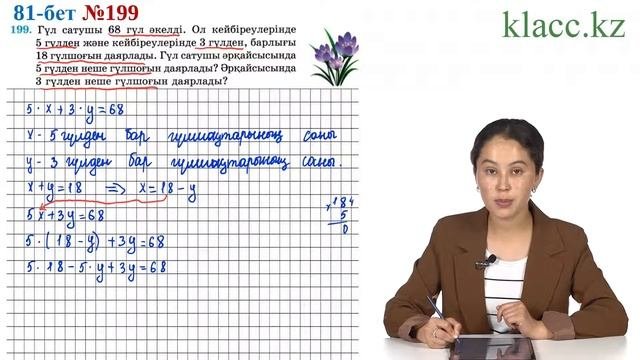 81-бет №199
klacc.kz
199. Гүл сатушы 68 гүл әкелді. Ол кейбіреулерінде
5 гүлден және кейбіреулерінде 3 гүлден, барлығы
18 гүлшоғын даярлады. Гүл сатушы әрқайсысында
5 гүлден неше гүлшоғын даярлады? Әрқайсысында
3 гүлден неше гүлшоғын даярлады?
5 · x + 3 · y = 68
x - 5 гүлден бар гүлшоқтарының саны
y - 3 гүлден бар гүлшоқтарының саны.
x + y = 18 ⇒ x = 18 - y
5x + 3y = 68
5 · (18 - y) + 3y = 68
5 · 18 - 5 · y + 3y = 68
4
18
× 5
0